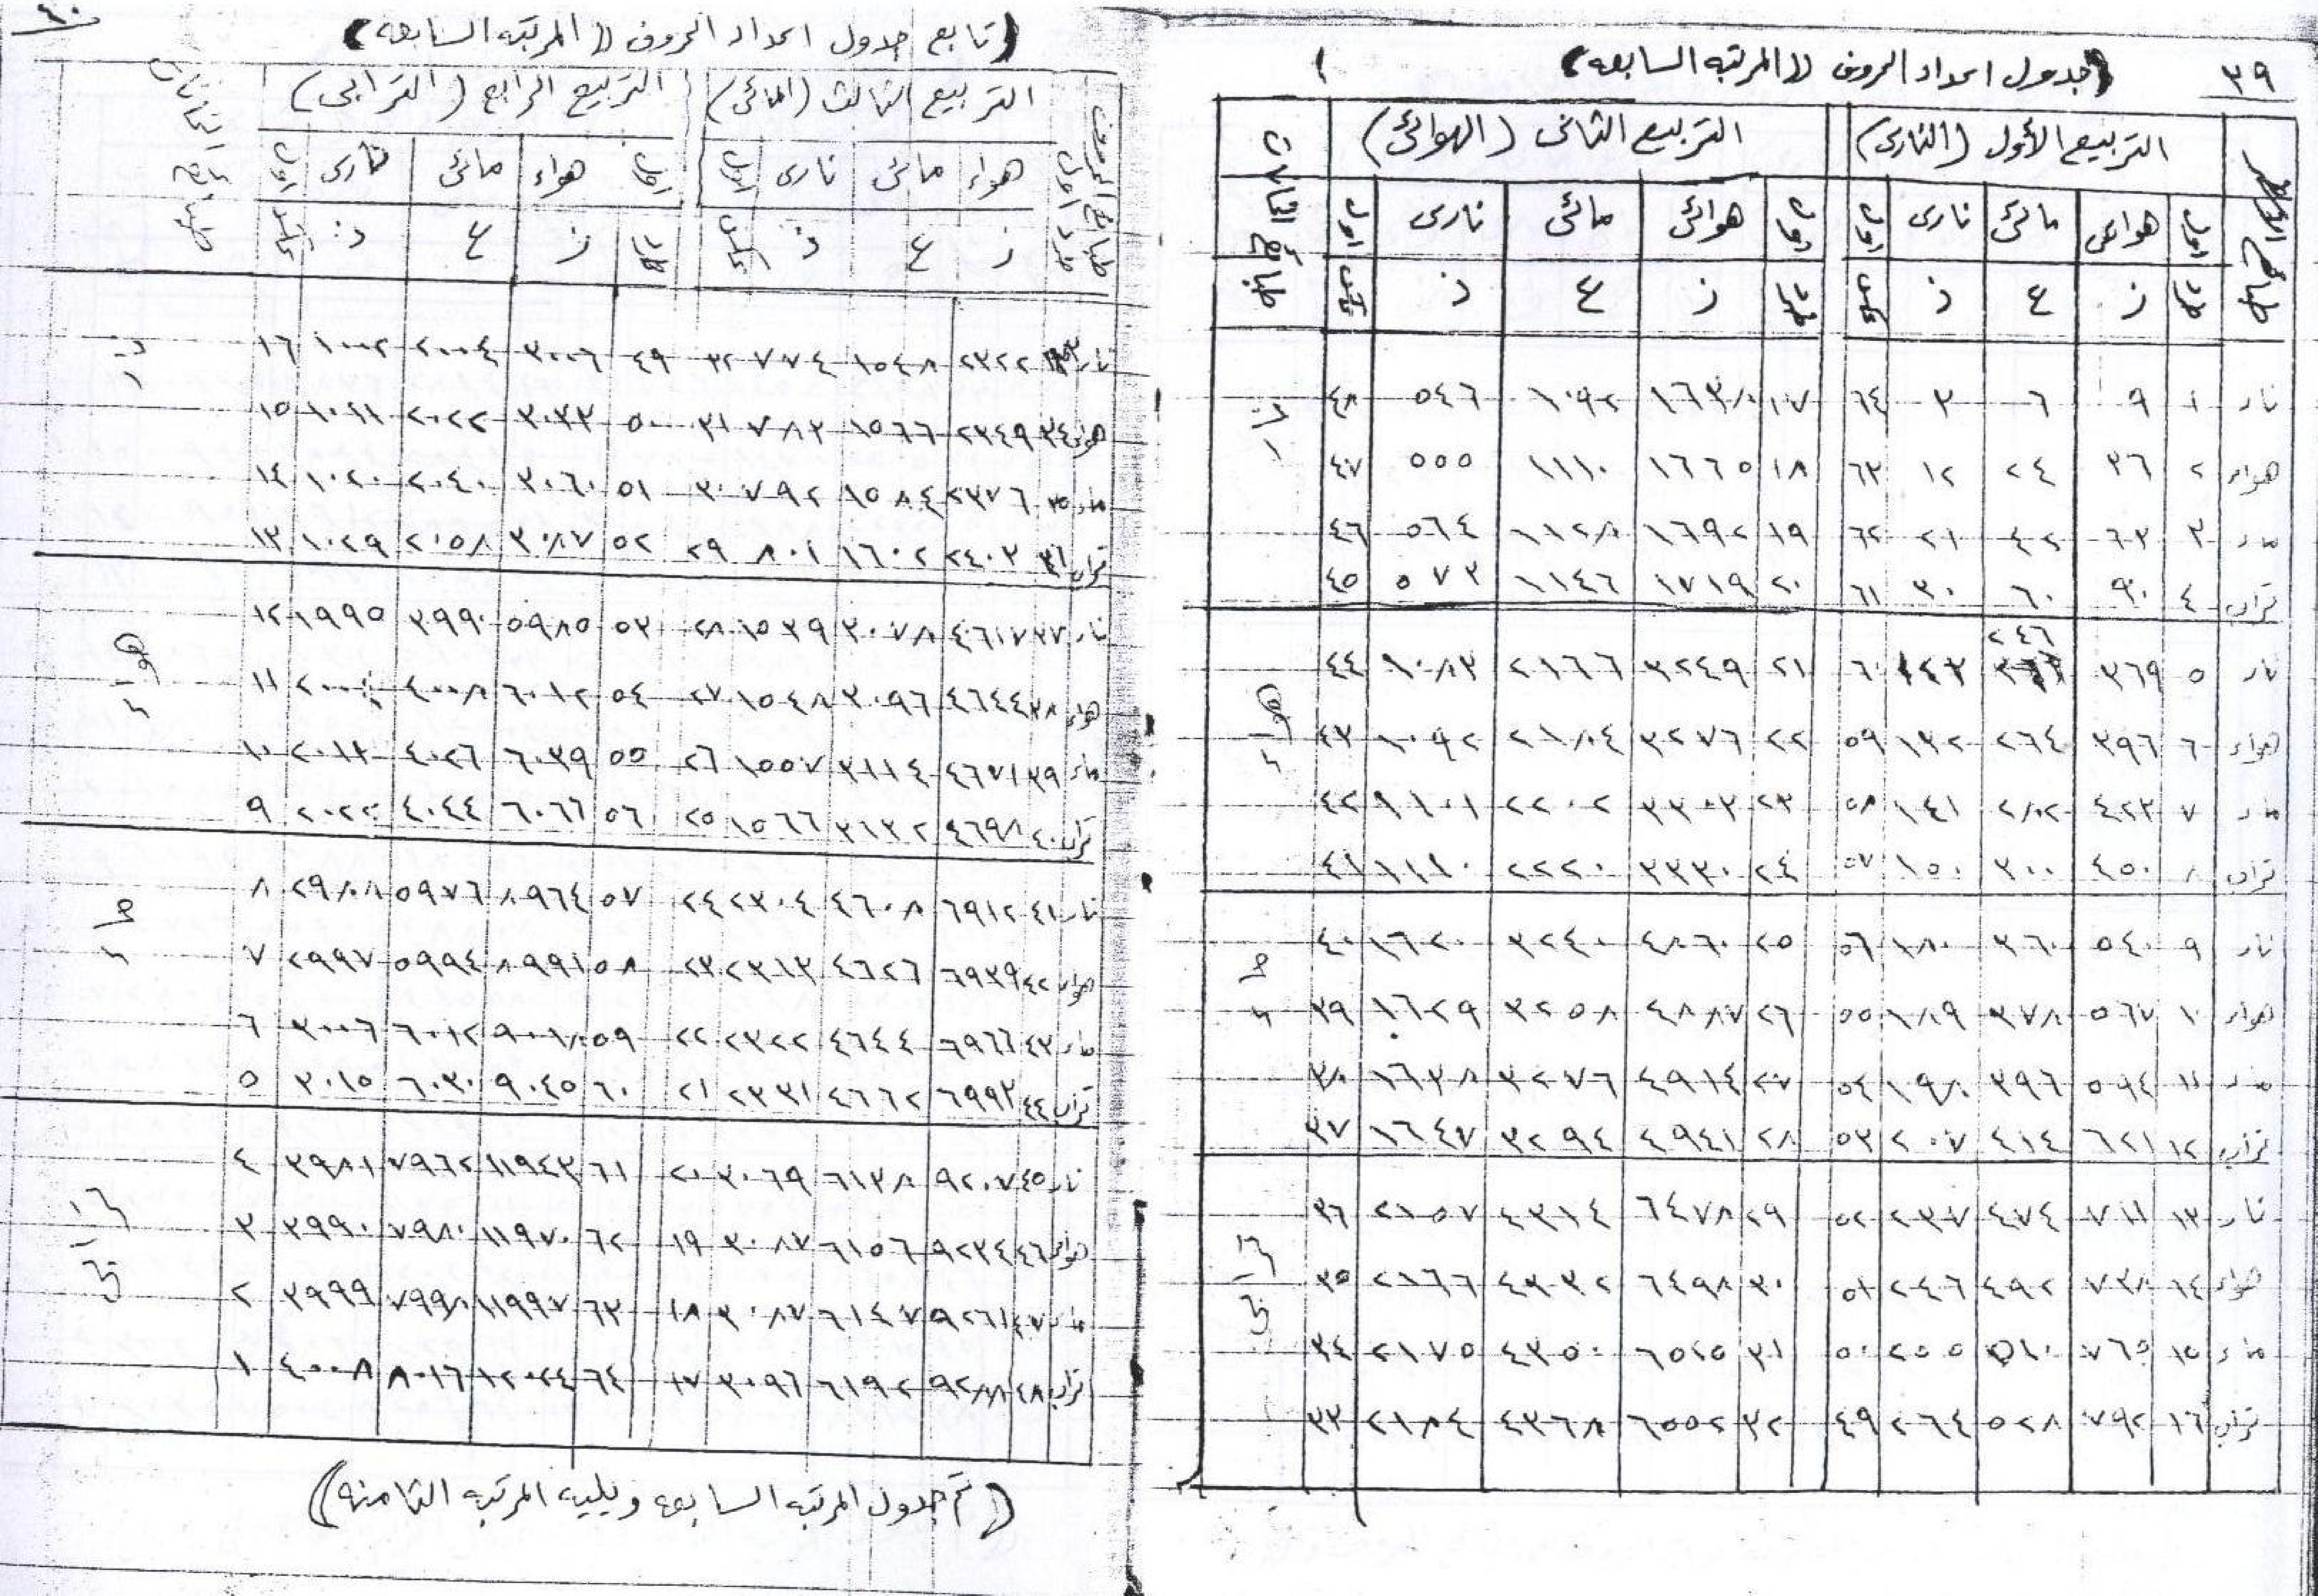 ٣٩ (جدول اعداد الحروف ((المرتبه السابعه)
التربيع الأول (النارى) التربيع الثانى (الهوائى)
هوائى مائى نارى هوائى مائى نارى
ز ع ذ ز ع ذ
نار ١ ٩ ٦ ٣ ٦٤ ١٧ ١٦٣٨ ١٠٩٢ ٥٤٦ ٤٨
هواء ٢ ٣٦ ٢٤ ١٢ ٦٣ ١٨ ١٦٦٥ ١١١٠ ٥٥٥ ٤٧
ماء ٣ ٦٣ ٤٢ ٢١ ٦٢ ١٩ ١٦٩٢ ١١٢٨ ٥٦٤ ٤٦
تراب ٤ ٩٠ ٦٠ ٣٠ ٦١ ٢٠ ١٧١٩ ١١٤٦ ٥٧٣ ٤٥
نار ٥ ٣٦٩ ٢٤٦ ١٢٣ ٦٠ ٢١ ٣٢٤٩ ٢١٦٦ ١٠٨٣ ٤٤
هواء ٦ ٣٩٦ ٢٦٤ ١٣٢ ٥٩ ٢٢ ٣٢٧٦ ٢١٨٤ ١٠٩٢ ٤٣
ماء ٧ ٤٢٣ ٢٨٢ ١٤١ ٥٨ ٢٣ ٣٣٠٣ ٢٢٠٢ ١١٠١ ٤٢
تراب ٨ ٤٥٠ ٣٠٠ ١٥٠ ٥٧ ٢٤ ٣٣٣٠ ٢٢٢٠ ١١١٠ ٤١
نار ٩ ٥٤٠ ٣٦٠ ١٨٠ ٥٦ ٢٥ ٤٨٦٠ ٣٢٤٠ ١٦٢٠ ٤٠
هواء ١٠ ٥٦٧ ٣٧٨ ١٨٩ ٥٥ ٢٦ ٤٨٨٧ ٣٢٥٨ ١٦٢٩ ٣٩
ماء ١١ ٥٩٤ ٣٩٦ ١٩٨ ٥٤ ٢٧ ٤٩١٤ ٣٢٧٦ ١٦٣٨ ٣٨
تراب ١٢ ٦٢١ ٤١٤ ٢٠٧ ٥٣ ٢٨ ٤٩٤١ ٣٢٩٤ ١٦٤٧ ٣٧
نار ١٣ ٧١١ ٤٧٤ ٢٣٧ ٥٢ ٢٩ ٦٤٧٨ ٤٣١٤ ٢١٥٧ ٣٦
هواء ١٤ ٧٣٨ ٤٩٢ ٢٤٦ ٥١ ٣٠ ٦٤٩٨ ٤٣٣٢ ٢١٦٦ ٣٥
ماء ١٥ ٧٦٥ ٥١٠ ٢٥٥ ٥٠ ٣١ ٦٥٢٥ ٤٣٥٠ ٢١٧٥ ٣٤
تراب ١٦ ٧٩٢ ٥٢٨ ٢٦٤ ٤٩ ٣٢ ٦٥٥٢ ٤٣٦٨ ٢١٨٤ ٣٣
٤٠
(تابع جدول اعداد الحروف ((المرتبه السابعه)
التربيع الثالث (المائى) التربيع الرابع (الترابى)
هواء مائى نارى هواء مائى نارى
ز ع ذ ز ع ذ
نار ٣٣ ٢٣٢٢ ١٥٤٨ ٧٧٤ ٣٢ ٤٩ ٣٠٠٦ ٢٠٠٤ ١٠٠٢ ١٦
هواء ٣٤ ٢٣٤٩ ١٥٦٦ ٧٨٣ ٣١ ٥٠ ٣٠٣٣ ٢٠٢٢ ١٠١١ ١٥
ماء ٣٥ ٢٣٧٦ ١٥٨٤ ٧٩٢ ٣٠ ٥١ ٣٠٦٠ ٢٠٤٠ ١٠٢٠ ١٤
تراب ٣٦ ٢٤٠٣ ١٦٠٢ ٨٠١ ٢٩ ٥٢ ٣٠٨٧ ٢٠٥٨ ١٠٢٩ ١٣
نار ٣٧ ٤٦١٧ ٣٠٧٨ ١٥٣٩ ٢٨ ٥٣ ٥٩٨٥ ٣٩٩٠ ١٩٩٥ ١٢
هواء ٣٨ ٤٦٤٤ ٣٠٩٦ ١٥٤٨ ٢٧ ٥٤ ٦٠١٢ ٤٠٠٨ ٢٠٠٤ ١١
ماء ٣٩ ٤٦٧١ ٣١١٤ ١٥٥٧ ٢٦ ٥٥ ٦٠٣٩ ٤٠٢٦ ٢٠١٣ ١٠
تراب ٤٠ ٤٦٩٨ ٣١٣٢ ١٥٦٦ ٢٥ ٥٦ ٦٠٦٦ ٤٠٤٤ ٢٠٢٢ ٩
نار ٤١ ٦٩١٢ ٤٦٠٨ ٢٣٠٤ ٢٤ ٥٧ ٨٩٦٤ ٥٩٧٦ ٢٩٨٠٨ ٨
هواء ٤٢ ٦٩٣٩ ٤٦٢٦ ٢٣١٣ ٢٣ ٥٨ ٨٩٩١ ٥٩٩٤ ٢٩٩٧ ٧
ماء ٤٣ ٦٩٦٦ ٤٦٤٤ ٢٣٢٢ ٢٢ ٥٩ ٩٠١٨ ٦٠١٢ ٣٠٠٦ ٦
تراب ٤٤ ٦٩٩٣ ٤٦٦٢ ٢٣٣١ ٢١ ٦٠ ٩٠٤٥ ٦٠٣٠ ٣٠١٥ ٥
نار ٤٥ ٩٢٠٧ ٦١٣٨ ٣٠٦٩ ٢٠ ٦١ ١١٩٤٣ ٧٩٦٢ ٣٩٨١ ٤
هواء ٤٦ ٩٢٣٤ ٦١٥٦ ٣٠٨٧ ١٩ ٦٢ ١١٩٧٠ ٧٩٨٠ ٣٩٩٠ ٣
ماء ٤٧ ٩٢٦١ ٦١٤٧ ٣٠٨٧ ١٨ ٦٣ ١١٩٩٧ ٧٩٩٨ ٣٩٩٩ ٢
تراب ٤٨ ٩٢٨٨ ٦١٩٢ ٣٠٩٦ ١٧ ٦٤ ١٢٠٢٤ ٨٠١٦ ٤٠٠٨ ١
((تم جدول المرتبه السابعه ويليه المرتبه الثامنه))